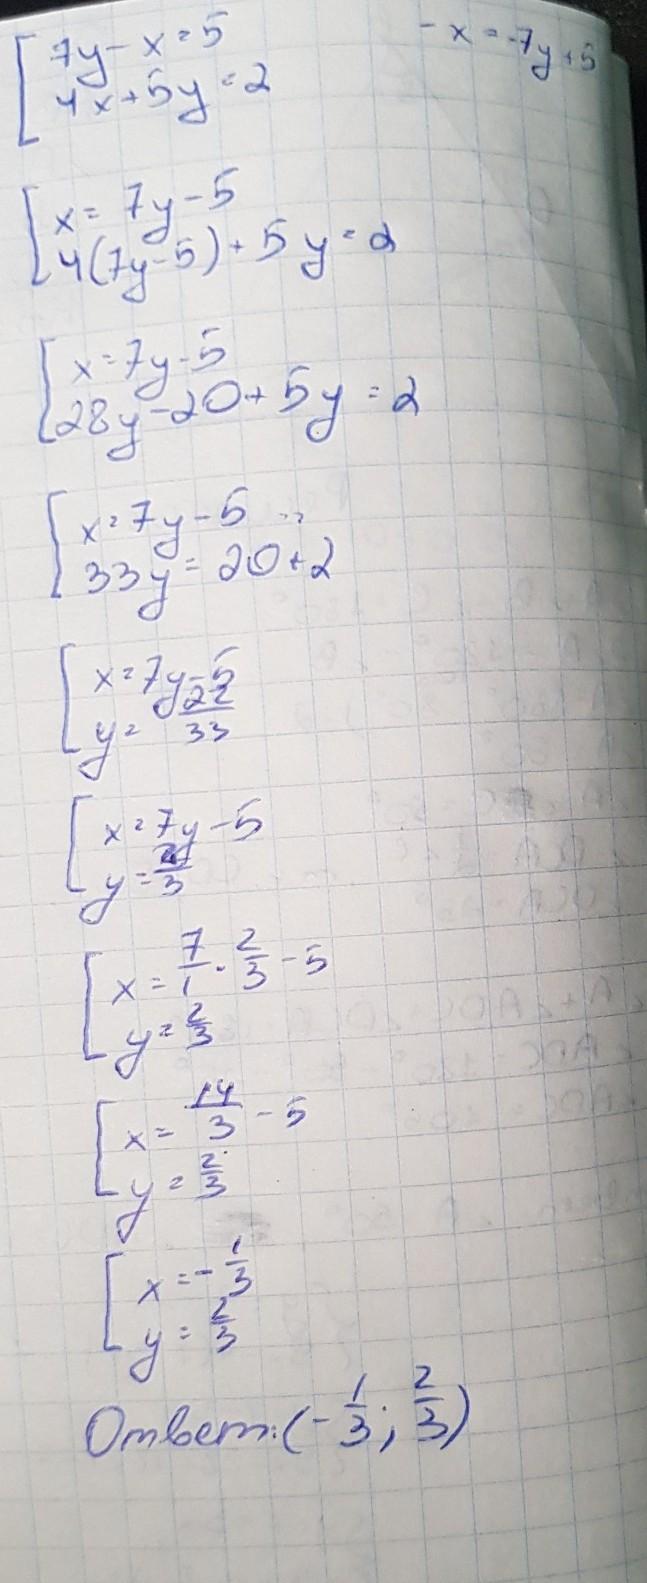 7y - x = 5
- x = -7y + 5
4x + 5y = 2
x = 7y - 5
4(7y - 5) + 5y = 2
x = 7y - 5
28y - 20 + 5y = 2
x = 7y - 5
33y = 20 + 2
x = 7y - 5
y = 22/33
x = 7y - 5
y = 2/3
x = 7/1 · 2/3 - 5
y = 2/3
x = 14/3 - 5
y = 2/3
x = - 1/3
y = 2/3
Ответ: (- 1/3; 2/3)